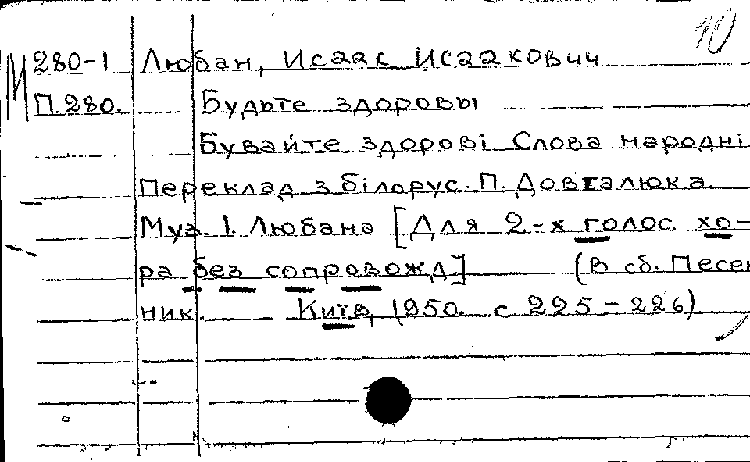 10
М 280-1 Любан, Исаак Исаакович
П.280. Будьте здоровы
Бувайте здорові Слова народні
Переклад з білорус. П. Довгалюка.
Муз. І. Любана [Для 2-х голос. хо-
ра без сопровожд] (В сб. Песен
ник. Київ, 1950. с 225-226)